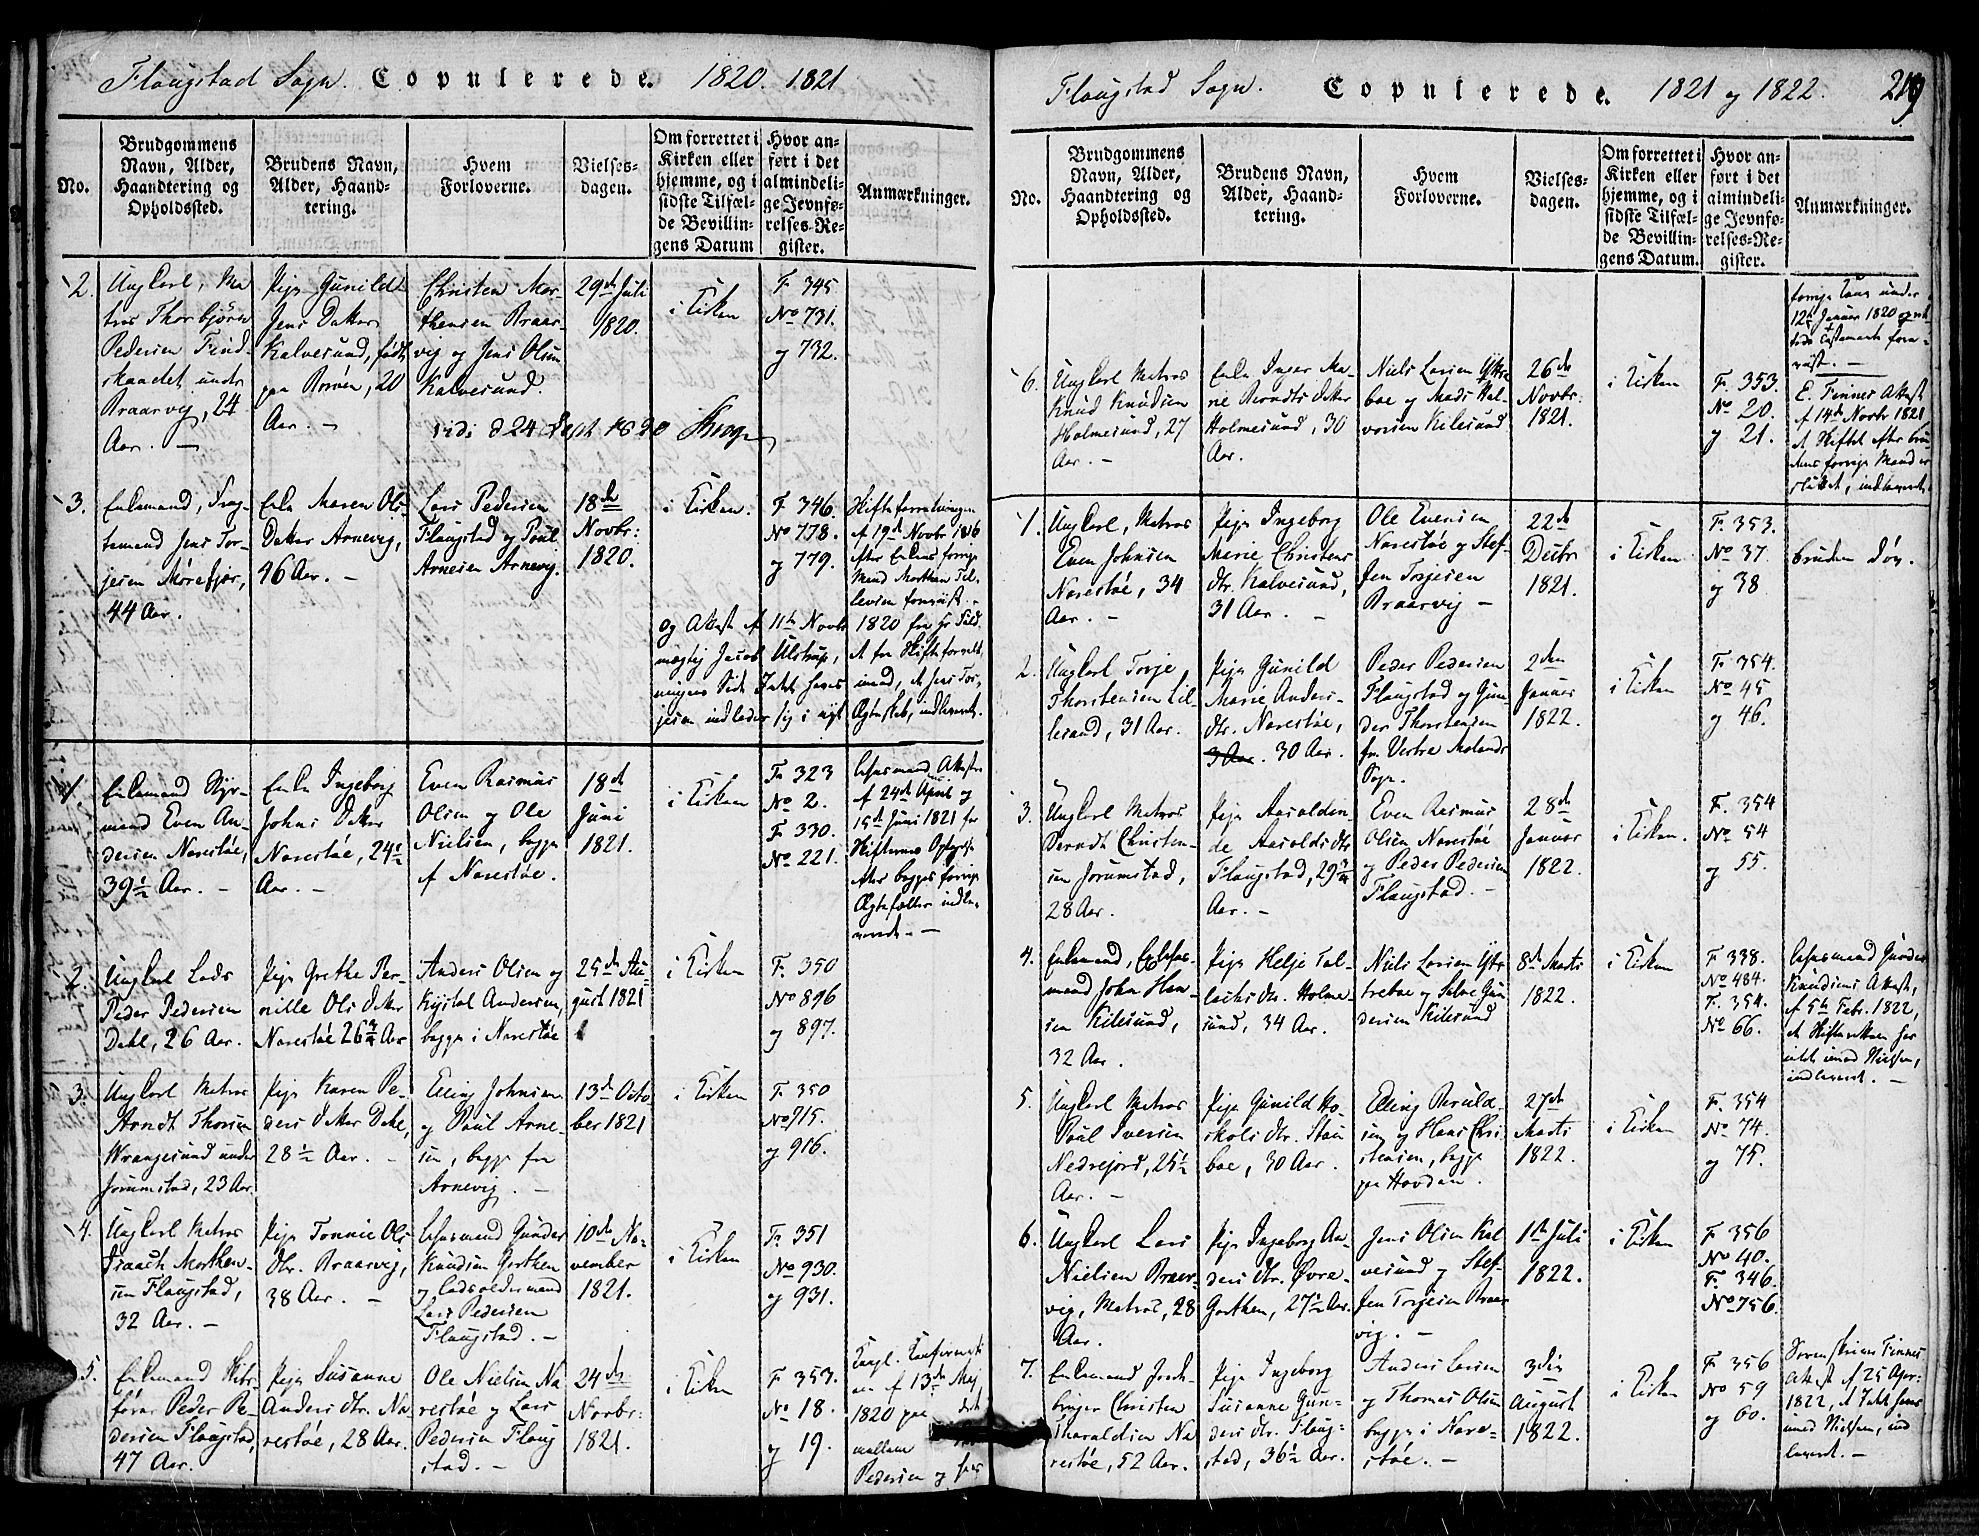 Flaugstad Sogn. Copulerede. 1820. 1821
No.
Brudgommens Navn, Alder, Haandtering og Opholdssted.
Brudens Navn, Alder, Haandtering.
Hvem Forloverne.
Vielsesdagen.
Om forrettet i Kirken eller hjemme, og i sidste Tilfælde Bevillingens Datum
Hvor anført i det almindelige Jevnførelses-Register.
Anmærkninger.
2.
Ungkarl, Ma
tros Thorbjörn
Pedersen Find
skaadet under
Braarvig, 24
Aar. –
Pige Gunild
Jens Datter
Kalvesund, født
paa Borøen, 20
Aar. –
Christen Mor
thensen Braar
vig og Jens Olsen
Kalvesund.
29de Juli
1820.
i Kirken
F. 345
No 731.
og 732.
vidi d 24 Sept 1820
3.
Enkemand, Frag
temand Jens Tor
jesen Mørefjær,
44 Aar.
Enke Maren Ols
Datter Arnevig,
46 Aar. –
Lars Pedersen
Flaugstad og Poul
Arnesen Arnevig.
18de
Novbr:
1820.
i Kirken.
F. 346
No 778.
og 779.
Skifteforvalteren
af 19de Novbr 1816
efter Enkens forrige
Mand Morthen Tel
levsen foreviist. –
og Attest af 11te Novbr 1820 fra Hr Fuld
mægtig Jacob Ulstrup, at fra Skifteforvalt
ningens Side Intet haves imod, at Jens Tor
jesen indlader sig i nyt Ægteskab, indleveret.
1.
Enkemand Styr
mand Even An
dersen Narestøe,
39½ Aar. –
Enke Ingeborg
Johns Datter
Narestøe, 24½
Aar. –
Even Rasmus
Olsen og Ole
Nielsen, begge
af Narestøe.
18de
Juni
1821.
i Kirken
F. 323
No 2.
F. 330.
No 221.
af 24de April og
15de Juni 1821 for
Skifternes
efter begges forrige
Ægtefæller indle
veret. –
2.
Ungkarl Lods
Peder Pedersen
Dahl, 26 Aar.
Pige Grethe Per
nille Ols Datter
Narestøe 26¾ Aar
Anders Olsen og
Kystol Andersen,
begge i Narestøe
25de Au
gust 1821
i Kirken
F. 350
No 896
og 897.
3.
Ungkarl Matros
Arndt Thorsen
Wrangesund under
Jorumstad, 23 Aar.
Pige Karen Pe
ders Datter Dahl,
28½ Aar. –
Elling Johnsen
og Poul Arne
sen, begge fra
Arnevig. –
13de Octo
ber 1821
i Kirken
F. 350
No 915.
og 916.
4.
Ungkarl Matros
Isaach Morthen
sen Flaugstad,
32 Aar. –
Pige Tonnie Ols
Dtr. Braarvig,
38 Aar. –
Lehnsmand Gunder
Knudsen Gorthen
og Lodsoldermand
Lars Pedersen
Flaugstad. –
10de No
vember
1821.
i Kirken
F. 351
No 930.
og 931.
5.
Enkemand Skibs
fører Peder Pe
dersen Flaugstad,
47 Aar.
Pige Susanne
Anders Dtr. Na
restøe, 28 Aar.
Ole Nielsen Na
restøe og Lars
Pedersen Flaug
stad. –
24de
Novbr:
1821.
i Kirken
F. 353.
No 18.
og 19.
Kongl. Confirmati
on af 13de Maj
1820 paa
mellem
Pedersen og hans
Flaugstad Sogn. Copulerede. 1821 og 1822. 219
No.
Brudgommens Navn, Alder, Haandtering og Opholdssted.
Brudens Navn, Alder, Haandtering.
Hvem Forloverne.
Vielsesdagen.
Om forrettet i Kirken eller hjemme, og i sidste Tilfælde Bevillingens Datum.
Hvor anført i det almindelige Jevnførelses-Register.
Anmærkninger.
forrige Kone under
12te Januar 1820 opret
tede Testamente fore
viist. –
6.
Ungkarl Matros
Knud Knudsen
Holmesund, 27
Aar. –
Enke Inger Ma
rie Berndts Datter
Holmesund, 30
Aar.
Niels Larsen Yttre
boe og Mads Hal
vorsen Kilesund
26de
Novbr:
1821.
i Kirken
F. 353.
No 20.
og 21.
E. Finnes Attest
af 14de Novbr 1821
at Skiftet efter Bru
dens forrige Mand er
sluttet, indleveret.
1.
Ungkarl, Matros
Even Johnsen
Narestøe, 34
Aar. –
Pige Ingeborg
Marie Christens
dtr. Kalvesund,
31 Aar. –
Ole Evensen
Narestøe og Stef
fen Torjesen
Braarvig –
22de
Decbr
1821.
i Kirken
F. 353.
No 37.
og 38
Bruden døv.
2.
Ungkarl, Torje
Thorstensen Lil
lesand, 31 Aar.
Pige Gunild
Marie Anders
dtr. Narestøe,
3 Aar. 30 Aar.
Peder Pedersen
Flaugstad og Gun
der Thorstensen
fra Vestre Molands
Sogn.
2den
Januar
1822.
i Kirken
F. 354.
No 45
og 46.
3.
Ungkarl Matros
Berndt Christen
sen Jorumstad,
28 Aar.
Pige Aaralden
de Aarolds dtr
Flaugstad, 29¾
Aar. –
Even Rasmus
Olsen Narestøe
og Peder Pedersen
Flaugstad. –
28de
Januar
1822.
i Kirken.
F. 354
No 54
og 55.
4.
Enkemand,
mand John Han
sen Kilesund,
32 Aar.
Pige Helje Tal
lachs dtr. Holme
sund, 34 Aar.
Niels Larsen Ytt
treboe og Salve Gun
dersen Kilesund
8de Marts
1822.
i Kirken
F. 338.
No 484.
F. 354.
No 66.
Lehnsmand Gunder
Knudsens Attest,
af 5te Febr. 1822,
at Skifteretten har
intet imod Vielsen,
indleveret. –
5.
Ungkarl Matros
Poul Iversen
Nedrejord, 25½
Aar. –
Pige Gunild Ho
skols dtr. Stau
boe, 30 Aar.
Elling Beruld
sen og Hans Chri
stensen, begge
paa Hovden.
27de
Marts
1822.
i Kirken
F. 354
No 74.
og 75.
6.
Ungkarl Lars
Nielsen Braar
vig, Matros, 28
Aar.
Pige Ingeborg An
ders dtr. Øvre
Gorthen, 27½ Aar.
Jens Olsen Kal
vesund og Stef
fen Torjesen Braar
vig. –
1te Juli
1822.
i Kirken
F. 356
No 40.
F. 346.
No 756.
7.
Enkemand
Christen
Tharaldsen Na
restøe, 52 Aar.
Pige Ingeborg
Susanne Gun
ders dtr. Flaug
stad, 36½ Aar.
Anders Larsen
og Thomas Olsen
begge i Nare
støe. –
3die
August
1822.
i Kirken
F. 356
No 59
og 60.
Sorenskriver Finnes
Attest af 25 Apr:
1822, at Intet haves
imod Vielsen, ind
leveret. –